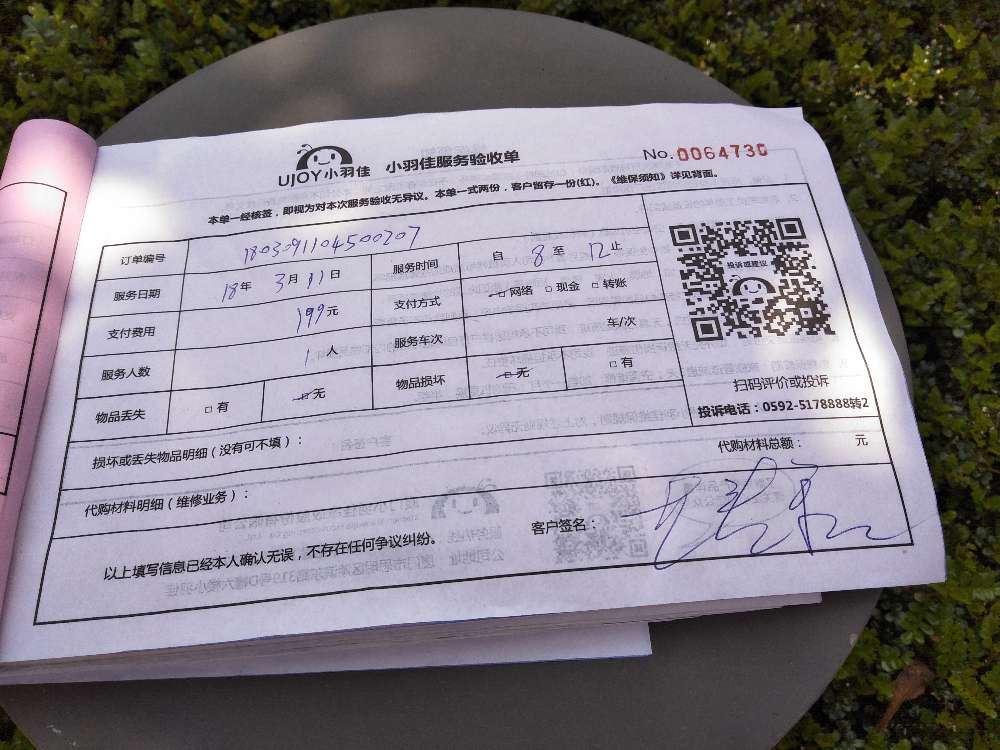 UJOY小羽佳 小羽佳服务验收单 No.0064730
本单一经核签，即视为对本次服务验收无异议。本单一式两份，客户留存一份(红)。《维保须知》详见背面。
订单编号 1803091104500207
服务日期 18年 3月 11日 服务时间 自 8 至 12 止
支付费用 199元 支付方式 网络 现金 转账
服务人数 1人 服务车次 车/次
物品丢失 有 无 物品损坏 无 有
投诉或建议
扫码评价或投诉
投诉电话：0592-5178888转2
损坏或丢失物品明细（没有可不填）：
代购材料总额： 元
代购材料明细（维修业务）：
客户签名：
以上填写信息已经本人确认无误，不存在任何争议纠纷。